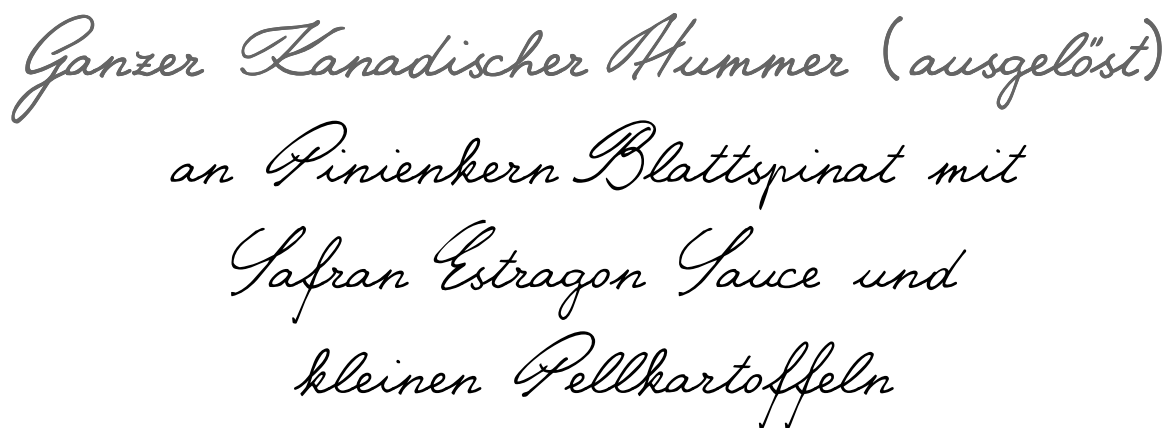 Ganzer Kanadischer Hummer (ausgelöst)
an Pinienkern Blattspinat mit
Safran Estragon Sauce und
kleinen Pellkartoffeln